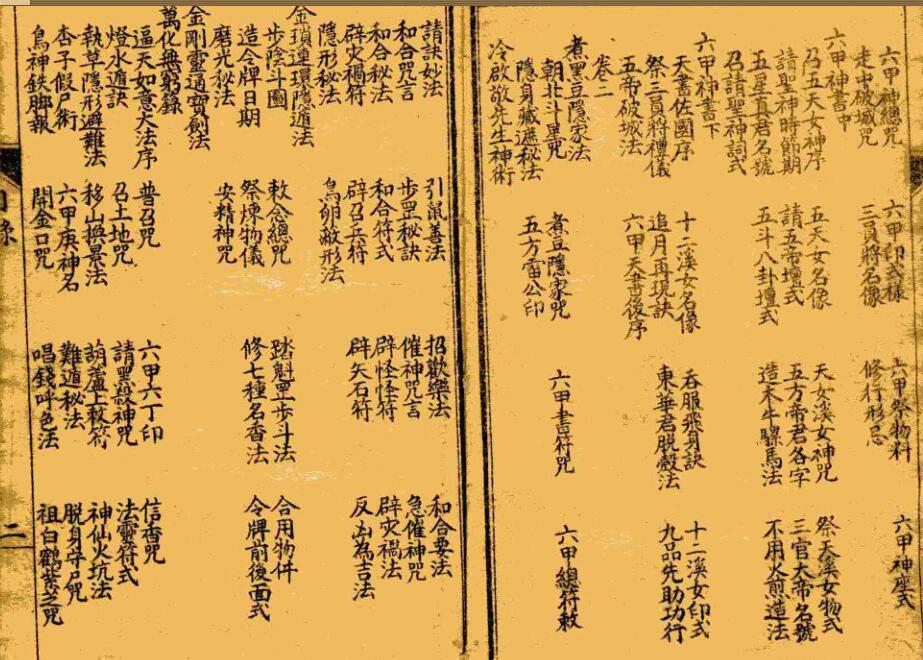 六甲神總咒　六甲印式樣　六甲祭物料　六甲神座式
走中破城咒　三員將名像　修行形忌
六甲神書中
召五天女神序　五天女名像　天女溪女神咒　祭天溪女物式
請聖神時節期　請五帝壇式　五方帝君各字　三官大帝名號
五星真君名號　五斗八卦壇式　造木牛騾馬法　不用火煎造法
召請聖神詞式
六甲神書下
天書佐國序　十二溪女名像　吞服飛身訣　十二溪女印式
祭三員將禮儀　追月再現訣　東華君脫殼法　九品先助功行
五帝破城法　六甲天書後序
卷二
煮黑豆隱家法　煮豆隱家咒　六甲書符咒　六甲總符敕
朝北斗罡咒　五方雷公印
隱身藏遮秘法
冷啟敬先生神術
請訣妙法　引鼠善法　招歡樂法　和合要法
和合咒言　步罡秘訣　催神咒言　急催神咒
和合秘法　和合符式　辟怪怪符　辟灾禍法
辟灾禍符　辟召兵符　辟矢石符　反凶為吉法
隱形秘法　鳥卵敵形法
金鎖連環隱遁法
步陰斗圖　敕念總咒　踏魁罡步斗法　合用物件
造令牌日期　祭煉物儀　修七種名香法　令牌前後面式
磨光秘法　安精神咒
金剛靈通寶劍法
萬化無窮錄
逼天如意大法序　普召咒　六甲六丁印　信香咒
燈水遁訣　召土地咒　請黑煞神咒　法靈符式
執草隱形避難法　移山換景法　葫蘆上敕符　神仙火坑法
杏子假尸術　六甲庚神名　難遁秘法　脫身守尸咒
鳥神鉄腳報　開金口咒　唱錢呼色法　祖白鶴紫芝咒
二